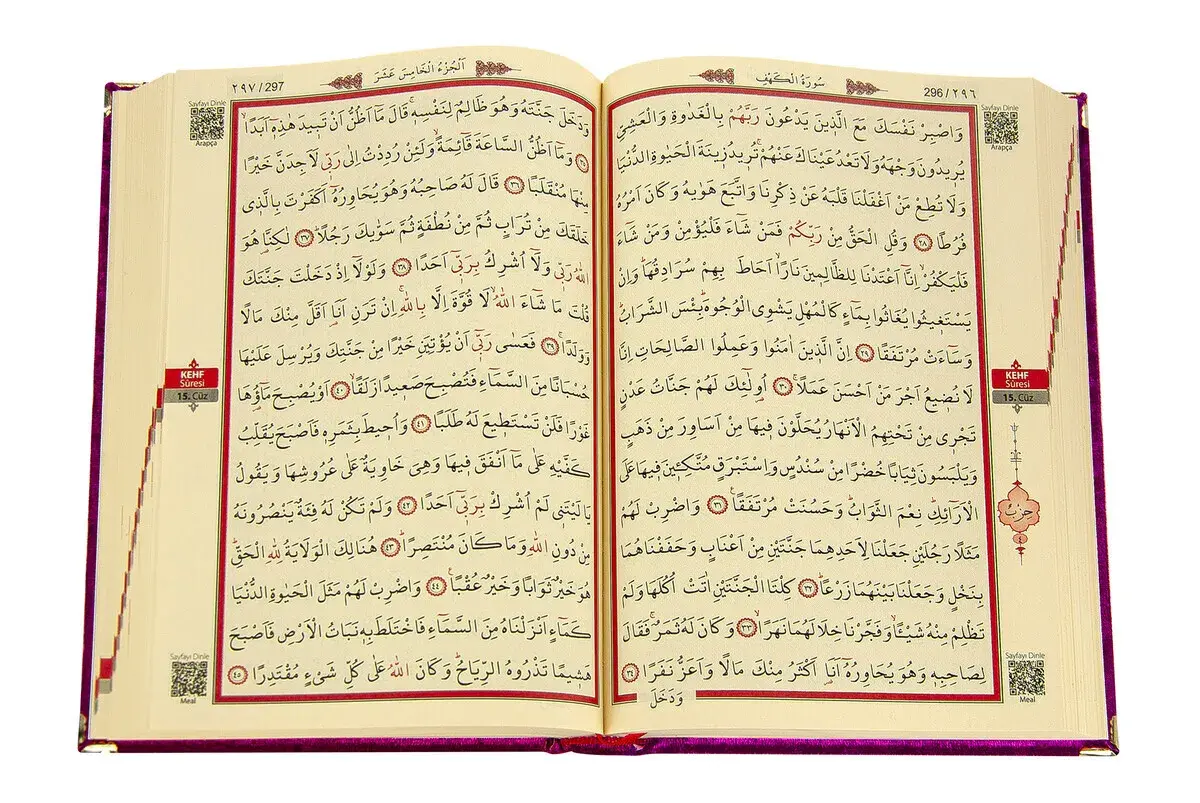 296 / ٢٩٦
سُورَةُ الْكَهْفِ
Sayfayı Dinle
Arapça
وَاصْبِرْ نَفْسَكَ مَعَ الَّذ۪ينَ يَدْعُونَ رَبَّهُمْ بِالْغَدٰوةِ وَالْعَشِيِّ
يُر۪يدُونَ وَجْهَهُ وَلَا تَعْدُ عَيْنَاكَ عَنْهُمْۚ تُر۪يدُ ز۪ينَةَ الْحَيٰوةِ الدُّنْيَاۚ
وَلَا تُطِعْ مَنْ اَغْفَلْنَا قَلْبَهُ عَنْ ذِكْرِنَا وَاتَّبَعَ هَوٰيهُ وَكَانَ اَمْرُهُ
فُرُطًا ﴿٢٨﴾ وَقُلِ الْحَقُّ مِنْ رَبِّكُمْ فَمَنْ شَٓاءَ فَلْيُؤْمِنْ وَمَنْ شَٓاءَ
فَلْيَكْفُرْۙ اِنَّٓا اَعْتَدْنَا لِلظَّالِم۪ينَ نَارًاۙ اَحَاطَ بِهِمْ سُرَادِقُهَاۜ وَاِنْ
يَسْتَغ۪يثُوا يُغَاثُوا بِمَٓاءٍ كَالْمُهْلِ يَشْوِي الْوُجُوهَۜ بِئْسَ الشَّرَابُۜ
وَسَٓاءَتْ مُرْتَفَقًا ﴿٢٩﴾ اِنَّ الَّذ۪ينَ اٰمَنُوا وَعَمِلُوا الصَّالِحَاتِ اِنَّا
لَا نُض۪يعُ اَجْرَ مَنْ اَحْسَنَ عَمَلًاۚ ﴿٣٠﴾ اُو۬لٰٓئِكَ لَهُمْ جَنَّاتُ عَدْنٍ
تَجْر۪ي مِنْ تَحْتِهِمُ الْاَنْهَارُ يُحَلَّوْنَ ف۪يهَا مِنْ اَسَاوِرَ مِنْ ذَهَبٍ
وَيَلْبَسُونَ ثِيَابًا خُضْرًا مِنْ سُنْدُسٍ وَاِسْتَبْرَقٍ مُتَّكِـ۪ٔينَ ف۪يهَا عَلَى
الْاَرَٓائِكِۜ نِعْمَ الثَّوَابُۜ وَحَسُنَتْ مُرْتَفَقًا۟ ﴿٣١﴾ وَاضْرِبْ لَهُمْ
مَثَلًا رَجُلَيْنِ جَعَلْنَا لِاَحَدِهِمَا جَنَّتَيْنِ مِنْ اَعْنَابٍ وَحَفَفْنَاهُمَا
بِنَخْلٍ وَجَعَلْنَا بَيْنَهُمَا زَرْعًاۜ ﴿٣٢﴾ كِلْتَا الْجَنَّتَيْنِ اٰتَتْ اُكُلَهَا وَلَمْ
تَظْلِمْ مِنْهُ شَيْـًٔاۙ وَفَجَّرْنَا خِلَالَهُمَا نَهَرًاۙ ﴿٣٣﴾ وَكَانَ لَهُ ثَمَرٌۚ فَقَالَ
لِصَاحِبِه۪ وَهُوَ يُحَاوِرُهُٓ اَنَا۬ اَكْثَرُ مِنْكَ مَالًا وَاَعَزُّ نَفَرًا ﴿٣٤﴾
وَدَخَلَ
KEHF
Sûresi
15. Cüz
حِزْبْ
٤
Sayfayı Dinle
Meal
٢٩٧ / 297
اَلْجُزْءُ الْخَامِسَ عَشَرَ
Sayfayı Dinle
Arapça
وَدَخَلَ جَنَّتَهُ وَهُوَ ظَالِمٌ لِنَفْسِه۪ۚ قَالَ مَٓا اَظُنُّ اَنْ تَب۪يدَ هٰذِه۪ٓ اَبَدًاۙ
﴿٣٥﴾ وَمَٓا اَظُنُّ السَّاعَةَ قَٓائِمَةًۙ وَلَئِنْ رُدِدْتُ اِلٰى رَبّ۪ي لَاَجِدَنَّ خَيْرًا
مِنْهَا مُنْقَلَبًا ﴿٣٦﴾ قَالَ لَهُ صَاحِبُهُ وَهُوَ يُحَاوِرُهُٓ اَكَفَرْتَ بِالَّذ۪ي
خَلَقَكَ مِنْ تُرَابٍ ثُمَّ مِنْ نُطْفَةٍ ثُمَّ سَوّٰيكَ رَجُلًاۜ ﴿٣٧﴾ لٰكِنَّا۬ هُوَ
اللّٰهُ رَبّ۪ي وَلَٓا اُشْرِكُ بِرَبّ۪ٓي اَحَدًا ﴿٣٨﴾ وَلَوْلَٓا اِذْ دَخَلْتَ جَنَّتَكَ
قُلْتَ مَا شَٓاءَ اللّٰهُۙ لَا قُوَّةَ اِلَّا بِاللّٰهِۚ اِنْ تَرَنِ اَنَا۬ اَقَلَّ مِنْكَ مَالًا
وَوَلَدًاۚ ﴿٣٩﴾ فَعَسٰى رَبّ۪ٓي اَنْ يُؤْتِيَنِ خَيْرًا مِنْ جَنَّتِكَ وَيُرْسِلَ عَلَيْهَا
حُسْبَانًا مِنَ السَّمَٓاءِ فَتُصْبِحَ صَع۪يدًا زَلَقًاۙ ﴿٤٠﴾ اَوْ يُصْبِحَ مَٓاؤُ۬هَا
غَوْرًا فَلَنْ تَسْتَط۪يعَ لَهُ طَلَبًا ﴿٤١﴾ وَاُح۪يطَ بِثَمَرِه۪ فَاَصْبَحَ يُقَلِّبُ
كَفَّيْهِ عَلٰى مَٓا اَنْفَقَ ف۪يهَا وَهِيَ خَاوِيَةٌ عَلٰى عُرُوشِهَا وَيَقُولُ
يَا لَيْتَن۪ي لَمْ اُشْرِكْ بِرَبّ۪ٓي اَحَدًا ﴿٤٢﴾ وَلَمْ تَكُنْ لَهُ فِئَةٌ يَنْصُرُونَهُ
مِنْ دُونِ اللّٰهِ وَمَا كَانَ مُنْتَصِرًاۜ ﴿٤٣﴾ هُنَالِكَ الْوَلَايَةُ لِلّٰهِ الْحَقِّۜ
هُوَ خَيْرٌ ثَوَابًا وَخَيْرٌ عُقْبًا۟ ﴿٤٤﴾ وَاضْرِبْ لَهُمْ مَثَلَ الْحَيٰوةِ الدُّنْيَا
كَمَٓاءٍ اَنْزَلْنَاهُ مِنَ السَّمَٓاءِ فَاخْتَلَطَ بِه۪ نَبَاتُ الْاَرْضِ فَاَصْبَحَ
هَش۪يمًا تَذْرُوهُ الرِّيَاحُۜ وَكَانَ اللّٰهُ عَلٰى كُلِّ شَيْءٍ مُقْتَدِرًا ﴿٤٥﴾
KEHF
Sûresi
15. Cüz
Sayfayı Dinle
Meal